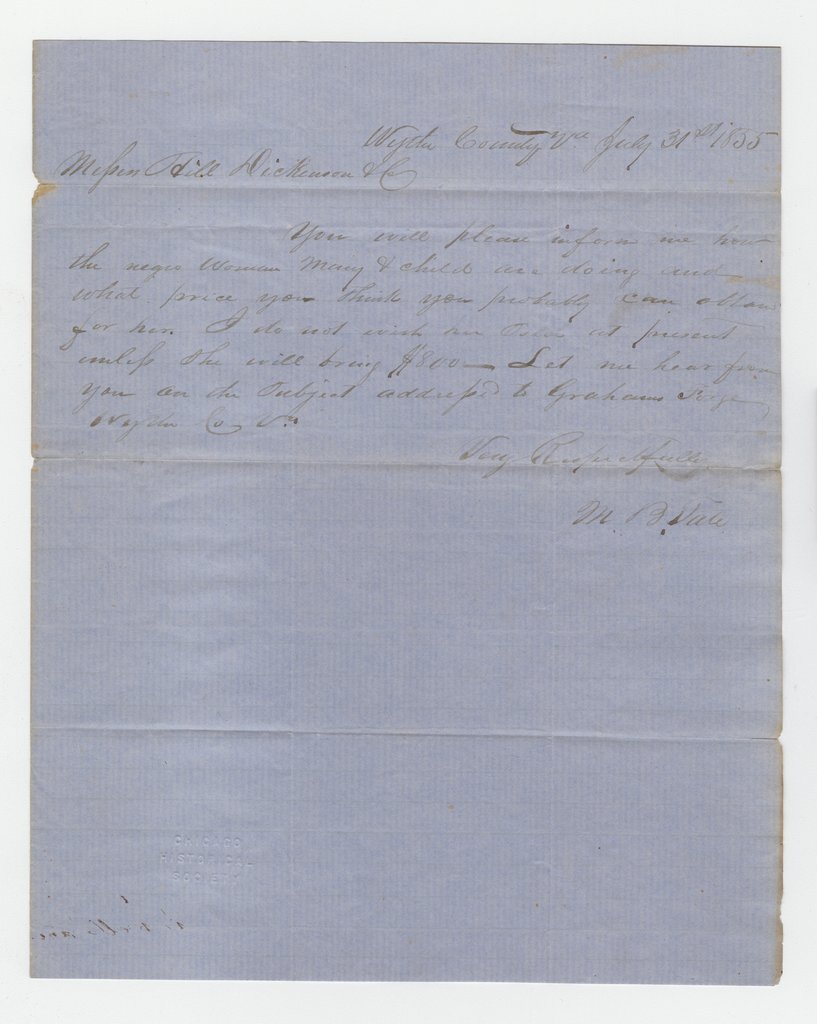 Wythe County Va July 31st 1855
Messrs Hill Dickenson & C
You will please inform me how
the negro Woman Mary & child are doing and
what price you think you probably can obtain
for her. I do not wish her at present
unless she will bring $800 — Let me hear from
you on the Subject addressed to Grahams Forge
Wythe Co Va
Very Respectfully
M. B. Tate
CHICAGO
HISTORICAL
SOCIETY